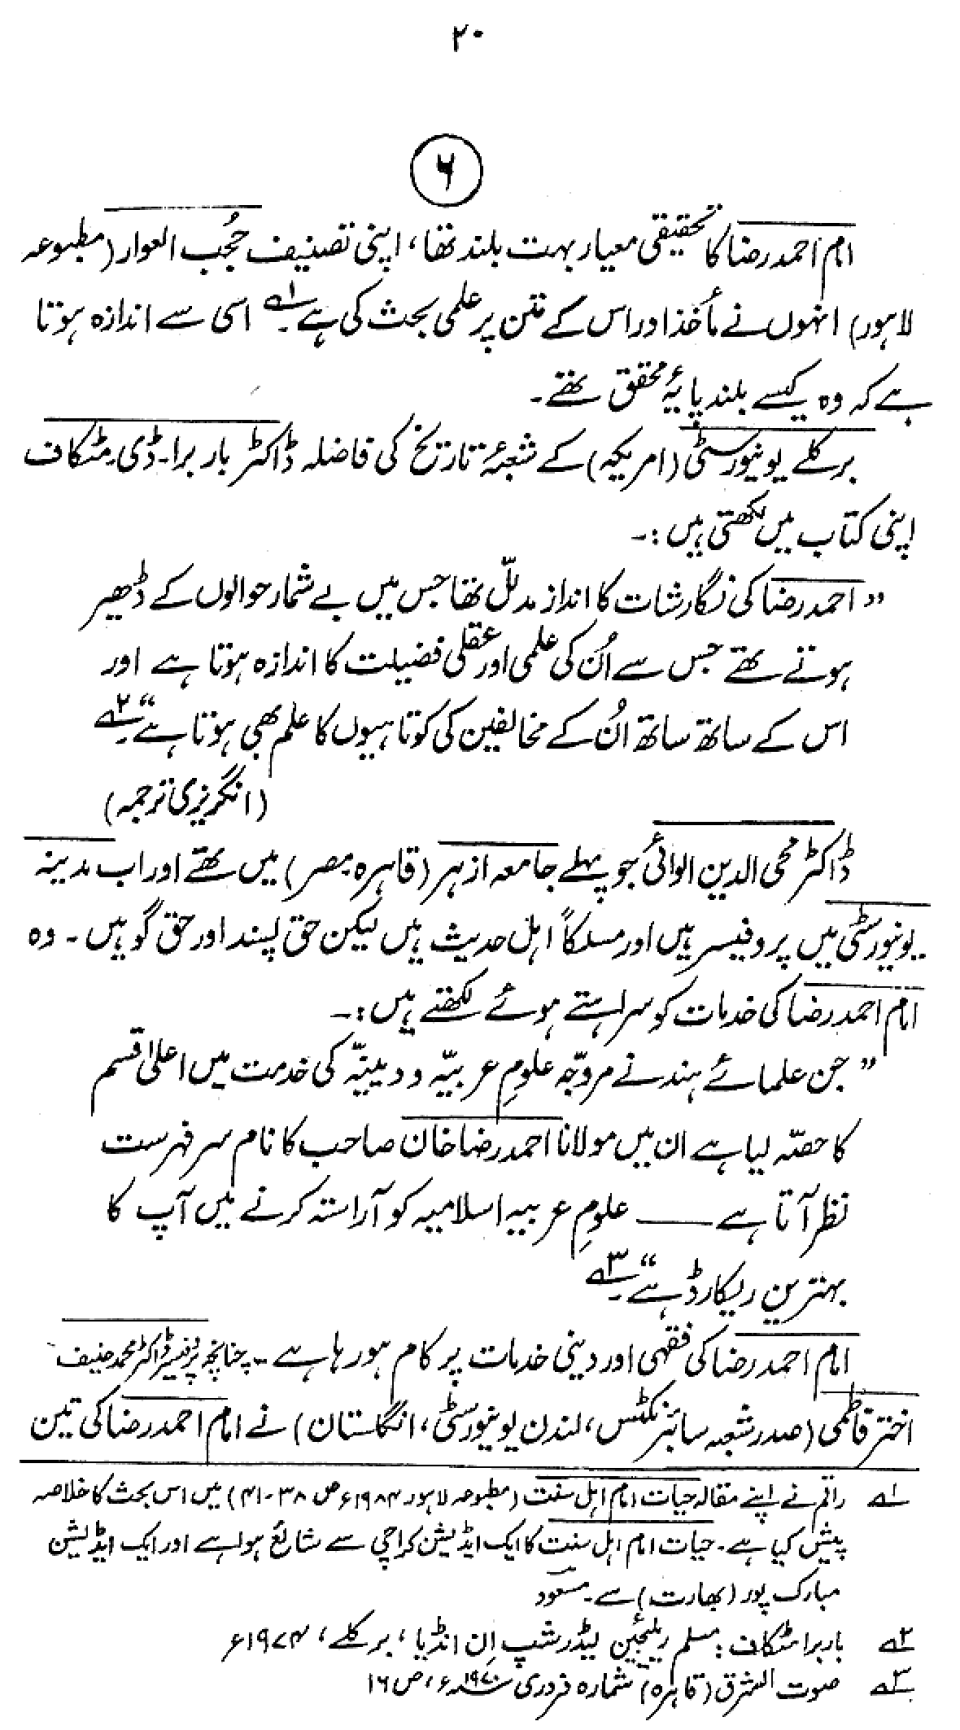 ۲۰
۶
امام احمد رضا کا تحقیقی معیار بہت بلند تھا، اپنی تصنیف حُجب العوار (مطبوعہ
لاہور) انہوں نے مأخذ اور اس کے متن پر علمی بحث کی ہے۔ ؎۱ اسی سے اندازہ ہوتا
ہے کہ وہ کیسے بلند پایۂ محقق تھے۔
برکلے یونیورسٹی (امریکہ) کے شعبۂ تاریخ کی فاضلہ ڈاکٹر باربرا۔ ڈی۔ مٹکاف
اپنی کتاب میں لکھتی ہیں :۔
”احمد رضا کی نگارشات کا انداز مدلّل تھا جس میں بے شمار حوالوں کے ڈھیر
ہوتے تھے جس سے اُن کی علمی اور عقلی فضیلت کا اندازہ ہوتا ہے اور
اس کے ساتھ ساتھ اُن کے مخالفین کی کوتاہیوں کا علم بھی ہوتا ہے“۔ ؎۲
(انگریزی ترجمہ)
ڈاکٹر محی الدین الوائی جو پہلے جامعہ ازہر (قاہرہ، مصر) میں تھے اور اب مدینہ
یونیورسٹی میں پروفیسر ہیں اور مسلکاً اہل حدیث ہیں لیکن حق پسند اور حق گو ہیں۔ وہ
امام احمد رضا کی خدمات کو سراہتے ہوئے لکھتے ہیں :۔
”جن علمائے ہند نے مروّجہ علومِ عربیّہ و دینیّہ کی خدمت میں اعلیٰ قسم
کا حصّہ لیا ہے ان میں مولانا احمد رضا خان صاحب کا نام سرفہرست
نظر آتا ہے —— علومِ عربیہ اسلامیہ کو آراستہ کرنے میں آپ کا
بہترین ریکارڈ ہے“۔ ؎۳
امام احمد رضا کی فقہی اور دینی خدمات پر کام ہو رہا ہے۔ چنانچہ پروفیسر ڈاکٹر محمد حنیف
اختر فاطمی (صدر شعبہ سائبرنٹکس، لندن یونیورسٹی، انگلستان) نے امام احمد رضا کی تین
؎۱ راقم نے اپنے مقالہ حیات امام اہل سنت (مطبوعہ لاہور ۱۹۸۴ء ص ۳۸-۴۱) میں اس بحث کا خلاصہ
پیش کیا ہے۔ حیات امام اہل سنت کا ایک ایڈیشن کراچی سے شائع ہوا ہے اور ایک ایڈیشن
مبارک پور (بھارت) سے۔ مسعود
؎۲ باربرا مٹکاف : مسلم ریلیجین لیڈرشپ اِن انڈیا، برکلے، ۱۹۷۴ء
؎۳ صوت الشرق (قاہرہ) شمارہ فروری ۱۹۷۰ء، ص ۱۶